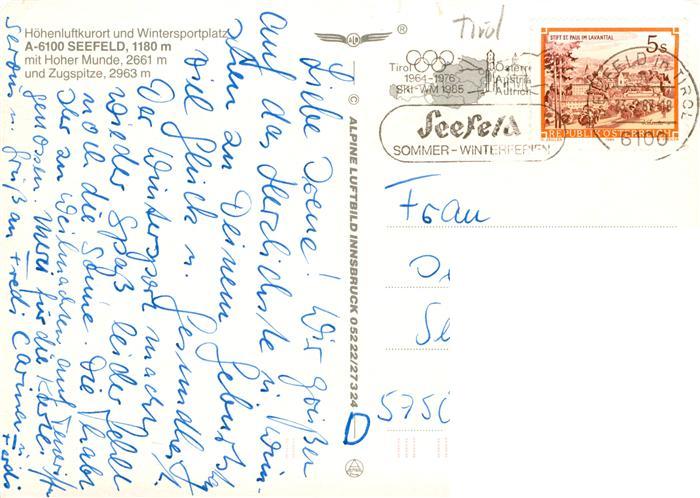 Höhenluftkurort und Wintersportplatz
A-6100 SEEFELD, 1180 m
mit Hoher Munde, 2661 m
und Zugspitze, 2963 m
ALB
®
© ALPINE LUFTBILD INNSBRUCK 05222/27324
Tirol
Tirol
1964-1976
SKI-WM 1985
Österre
Austria
Autrich
Seefeld
SOMMER-WINTERFERIEN
STIFT ST. PAUL IM LAVANTTAL
5s
REPUBLIK ÖSTERREICH
SEEFELD IN TIROL
6100
Liebe Irene! Wir grüßen
auf das Herzlichste u. wün-
schen zu Deinem Geburtstag
viel Glück u. Gesundheit.
Der Wintersport macht
wieder Spaß leider fehlt
noch die Sonne. Die habt
Ihr zu Weihnachten auf Teneriffa
genossen. Merci für die Karte.
Servus u. Gruß an Fredi Carmen u.
Ferdi
Frau
D
5750